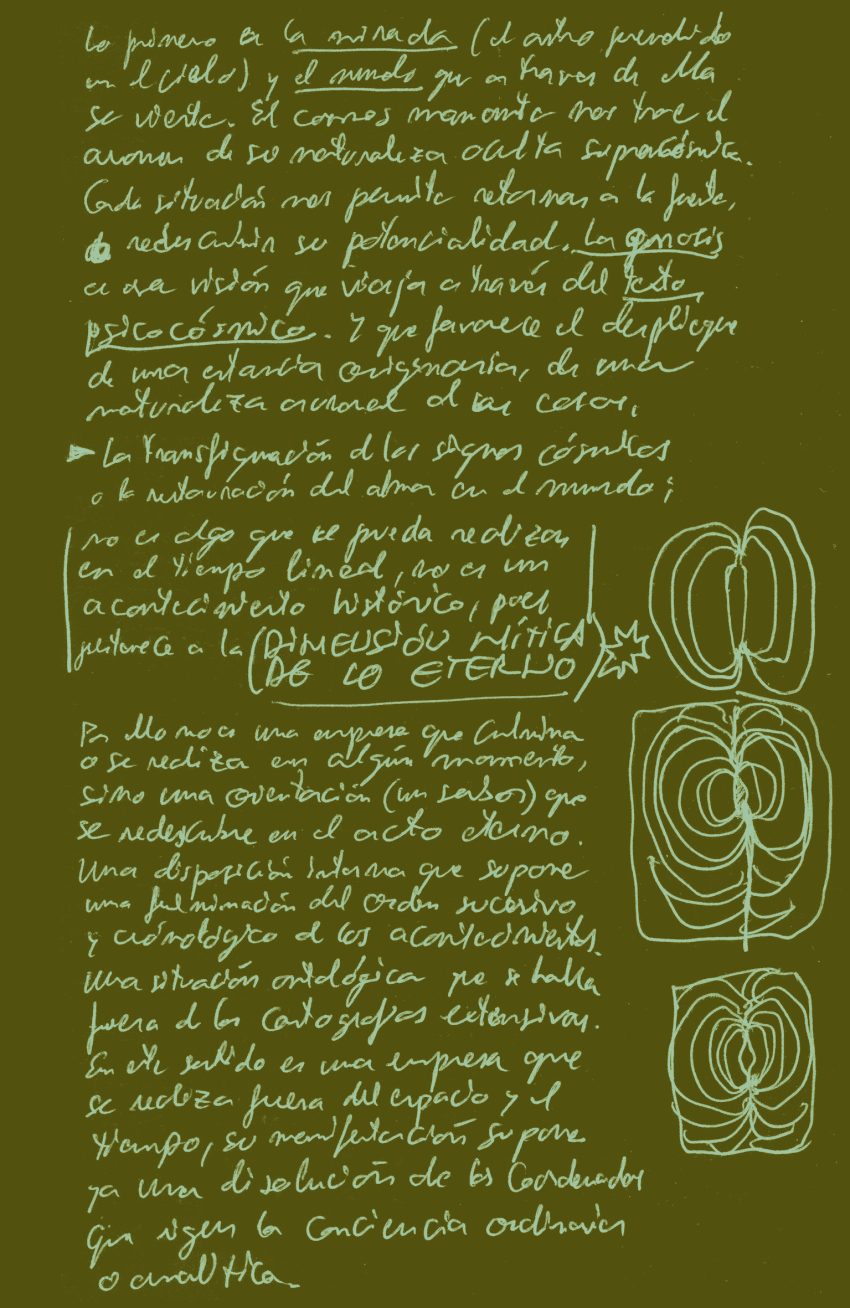 Lo primero es la mirada (el astro prendido
en el cielo) y el mundo que a traves de ella
se vierte. El cosmos manante nos trae el
aroma de su naturaleza oculta supracósmica.
Cada situación nos permite retornar a la fuente,
redescubrir su potencialidad. La gnosis
es esa visión que viaja a través del texto
psicocósmico. Y que favorece el despliegue
de una estancia originaria, de una
naturaleza auroral de las cosas.
La transfiguración de los signos cósmicos
o la restauración del alma en el mundo;
no es algo que se pueda realizar
en el tiempo lineal, no es un
acontecimiento histórico, pues
pertenece a la (DIMENSIÓN MÍTICA
DE LO ETERNO)
Por ello no es una empresa que culmina
o se realiza en algún momento,
sino una orientación (un sabor) que
se redescubre en el acto eterno.
Una disposición interna que supone
una fulminación del orden sucesivo
y cronológico de los acontecimientos.
Una situación ontológica que se halla
fuera de las cartografías extensivas.
En este sentido es una empresa que
se realiza fuera del espacio y el
tiempo, su manifestación supone
ya una disolución de las coordenadas
que rigen la conciencia ordinaria
o analítica.